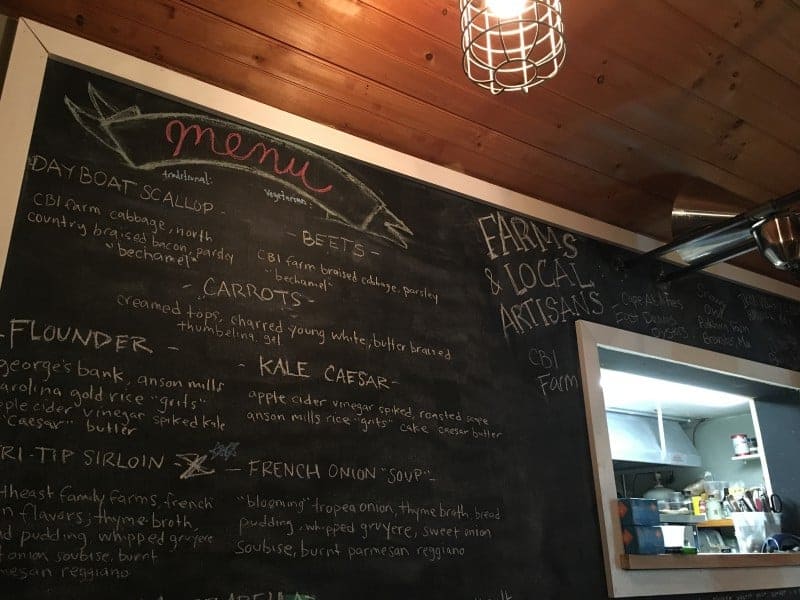 menu
traditional:
vegetarian:
DAY BOAT SCALLOP -
CBI farm cabbage, north
country braised bacon, parsley
"bechamel"
- BEETS -
CBI farm braised cabbage, parsley
"bechamel"
- CARROTS -
creamed tops, charred young white, butter braised
thumbeling gel
- FLOUNDER -
george's bank, anson mills
carolina gold rice "grits"
apple cider vinegar spiked kale
"caesar" butter
- KALE CAESAR -
apple cider vinegar spiked, roasted
anson mills rice "grits" cake caesar butter
TRI-TIP SIRLOIN -
family farms, french
flavors; thyme broth,
pudding, whipped gruyere
onion soubise, burnt
reggiano
- FRENCH ONION "SOUP" -
"blooming" tropea onion, thyme broth, bread
pudding, whipped gruyere, sweet onion
Soubise, burnt parmesan reggiano
FARMS
& LOCAL
ARTISANS
CBI
Farm
East Dennis
Oysters